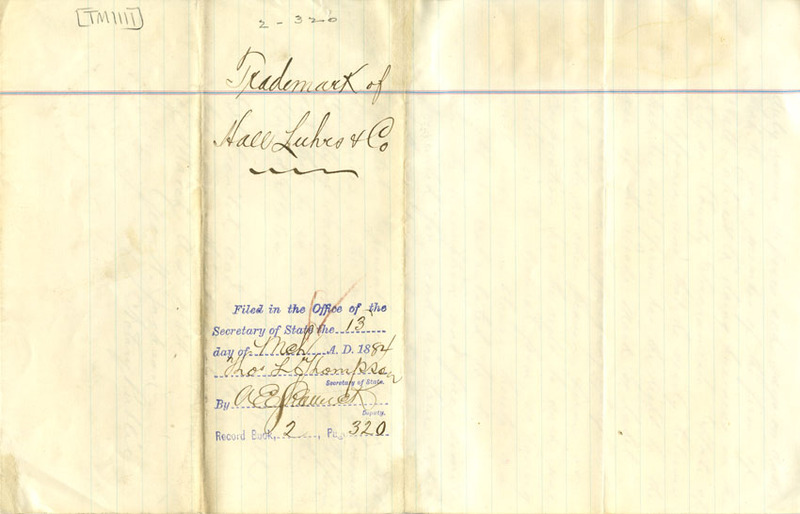 [TM1111]
2-320
Trademark of
Hall Luhrs & Co
Filed in the Office of the
Secretary of State the 13
day of Mch A. D. 1884
Thos L Thompson
Secretary of State.
By A E
Deputy.
Record Book, 2, Pg. 320